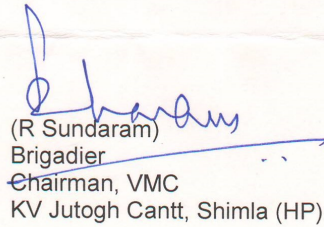 (R Sundaram)
Brigadier
Chairman, VMC
KV Jutogh Cantt, Shimla (HP)